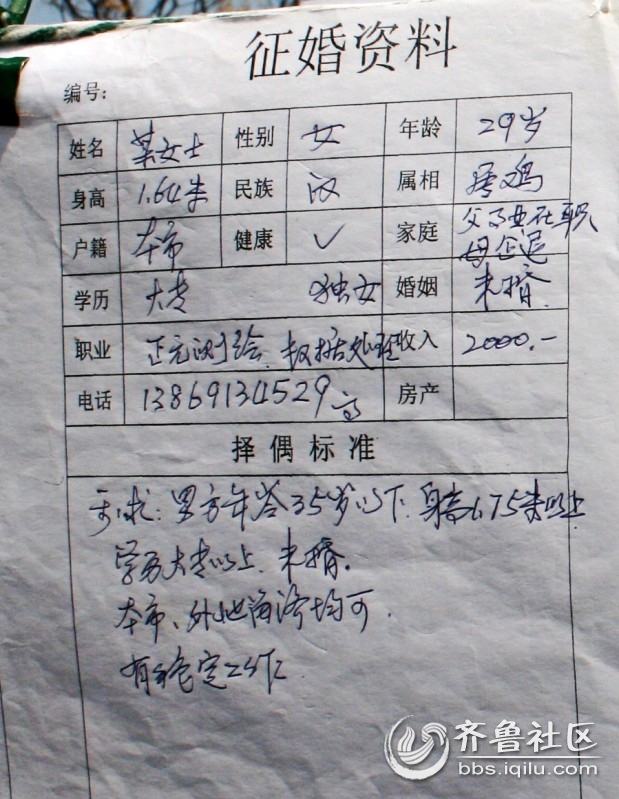 征婚资料
编号:
姓名 某女士 性别 女 年龄 29岁
身高 1.64米 民族 汉 属相 属鸡
户籍 本市 健康 ✓ 家庭 父事业在职
母企退
学历 大专 独女 婚姻 未婚
职业 正元测绘、数据处理 收入 2000.-
电话 13869134529 高 房产
择偶标准
要求: 男方年龄35岁以下 身高1.75米以上
学历大专以上 未婚.
本市、外地 均可
有稳定工作
齐鲁社区
bbs.iqilu.com